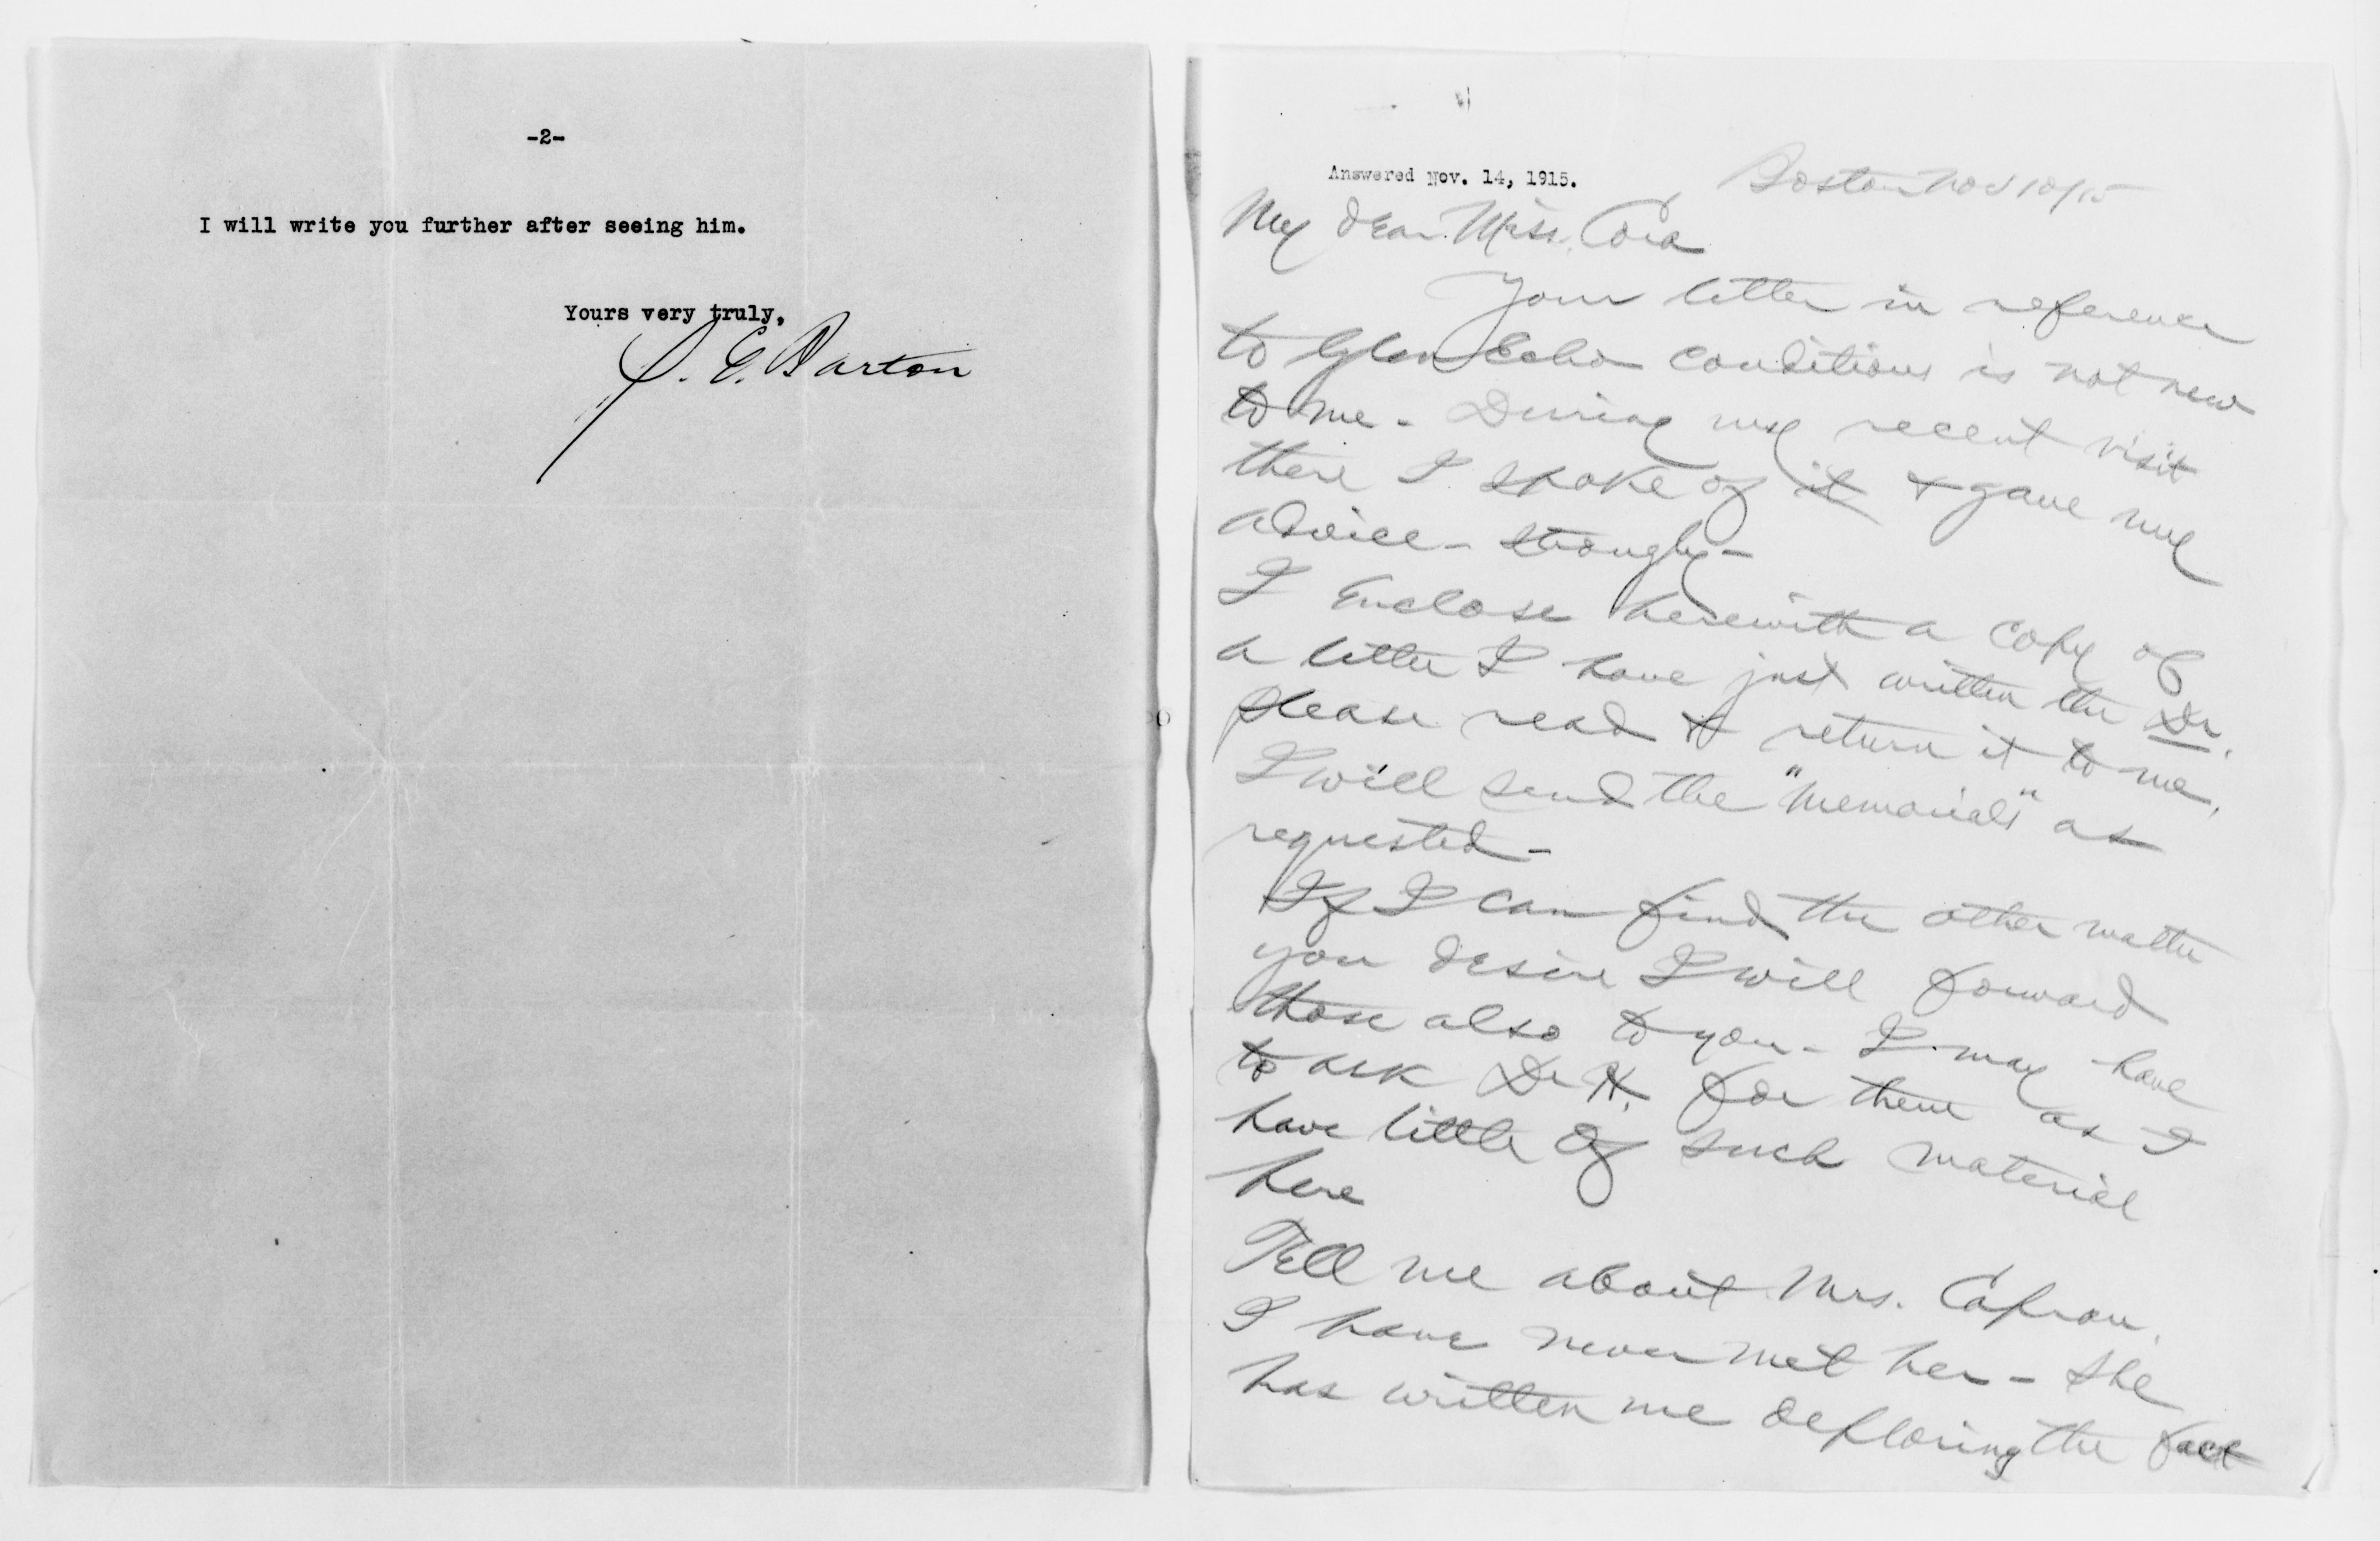 -2-
I will write you further after seeing him.
Yours very truly,
S. E. Barton
Answered Nov. 14, 1915.
Boston Nov 10/15
My dear Miss. Cora
Your letter in reference
to Glen Echo conditions is not new
to me - During my recent visit
there I spoke of it & gave my
advice - strongly -
I Enclose herewith a copy of
a letter I have just written the Dr.
please read & return it to me,
I will send the "Memorials" as
requested -
If I can find the other matter
you desire I will forward
those also to you - I may have
to ask Dr H. for them as I
have little of such material
here
Tell me about Mrs. Capron.
I have never met her - she
has written me deploring the fact